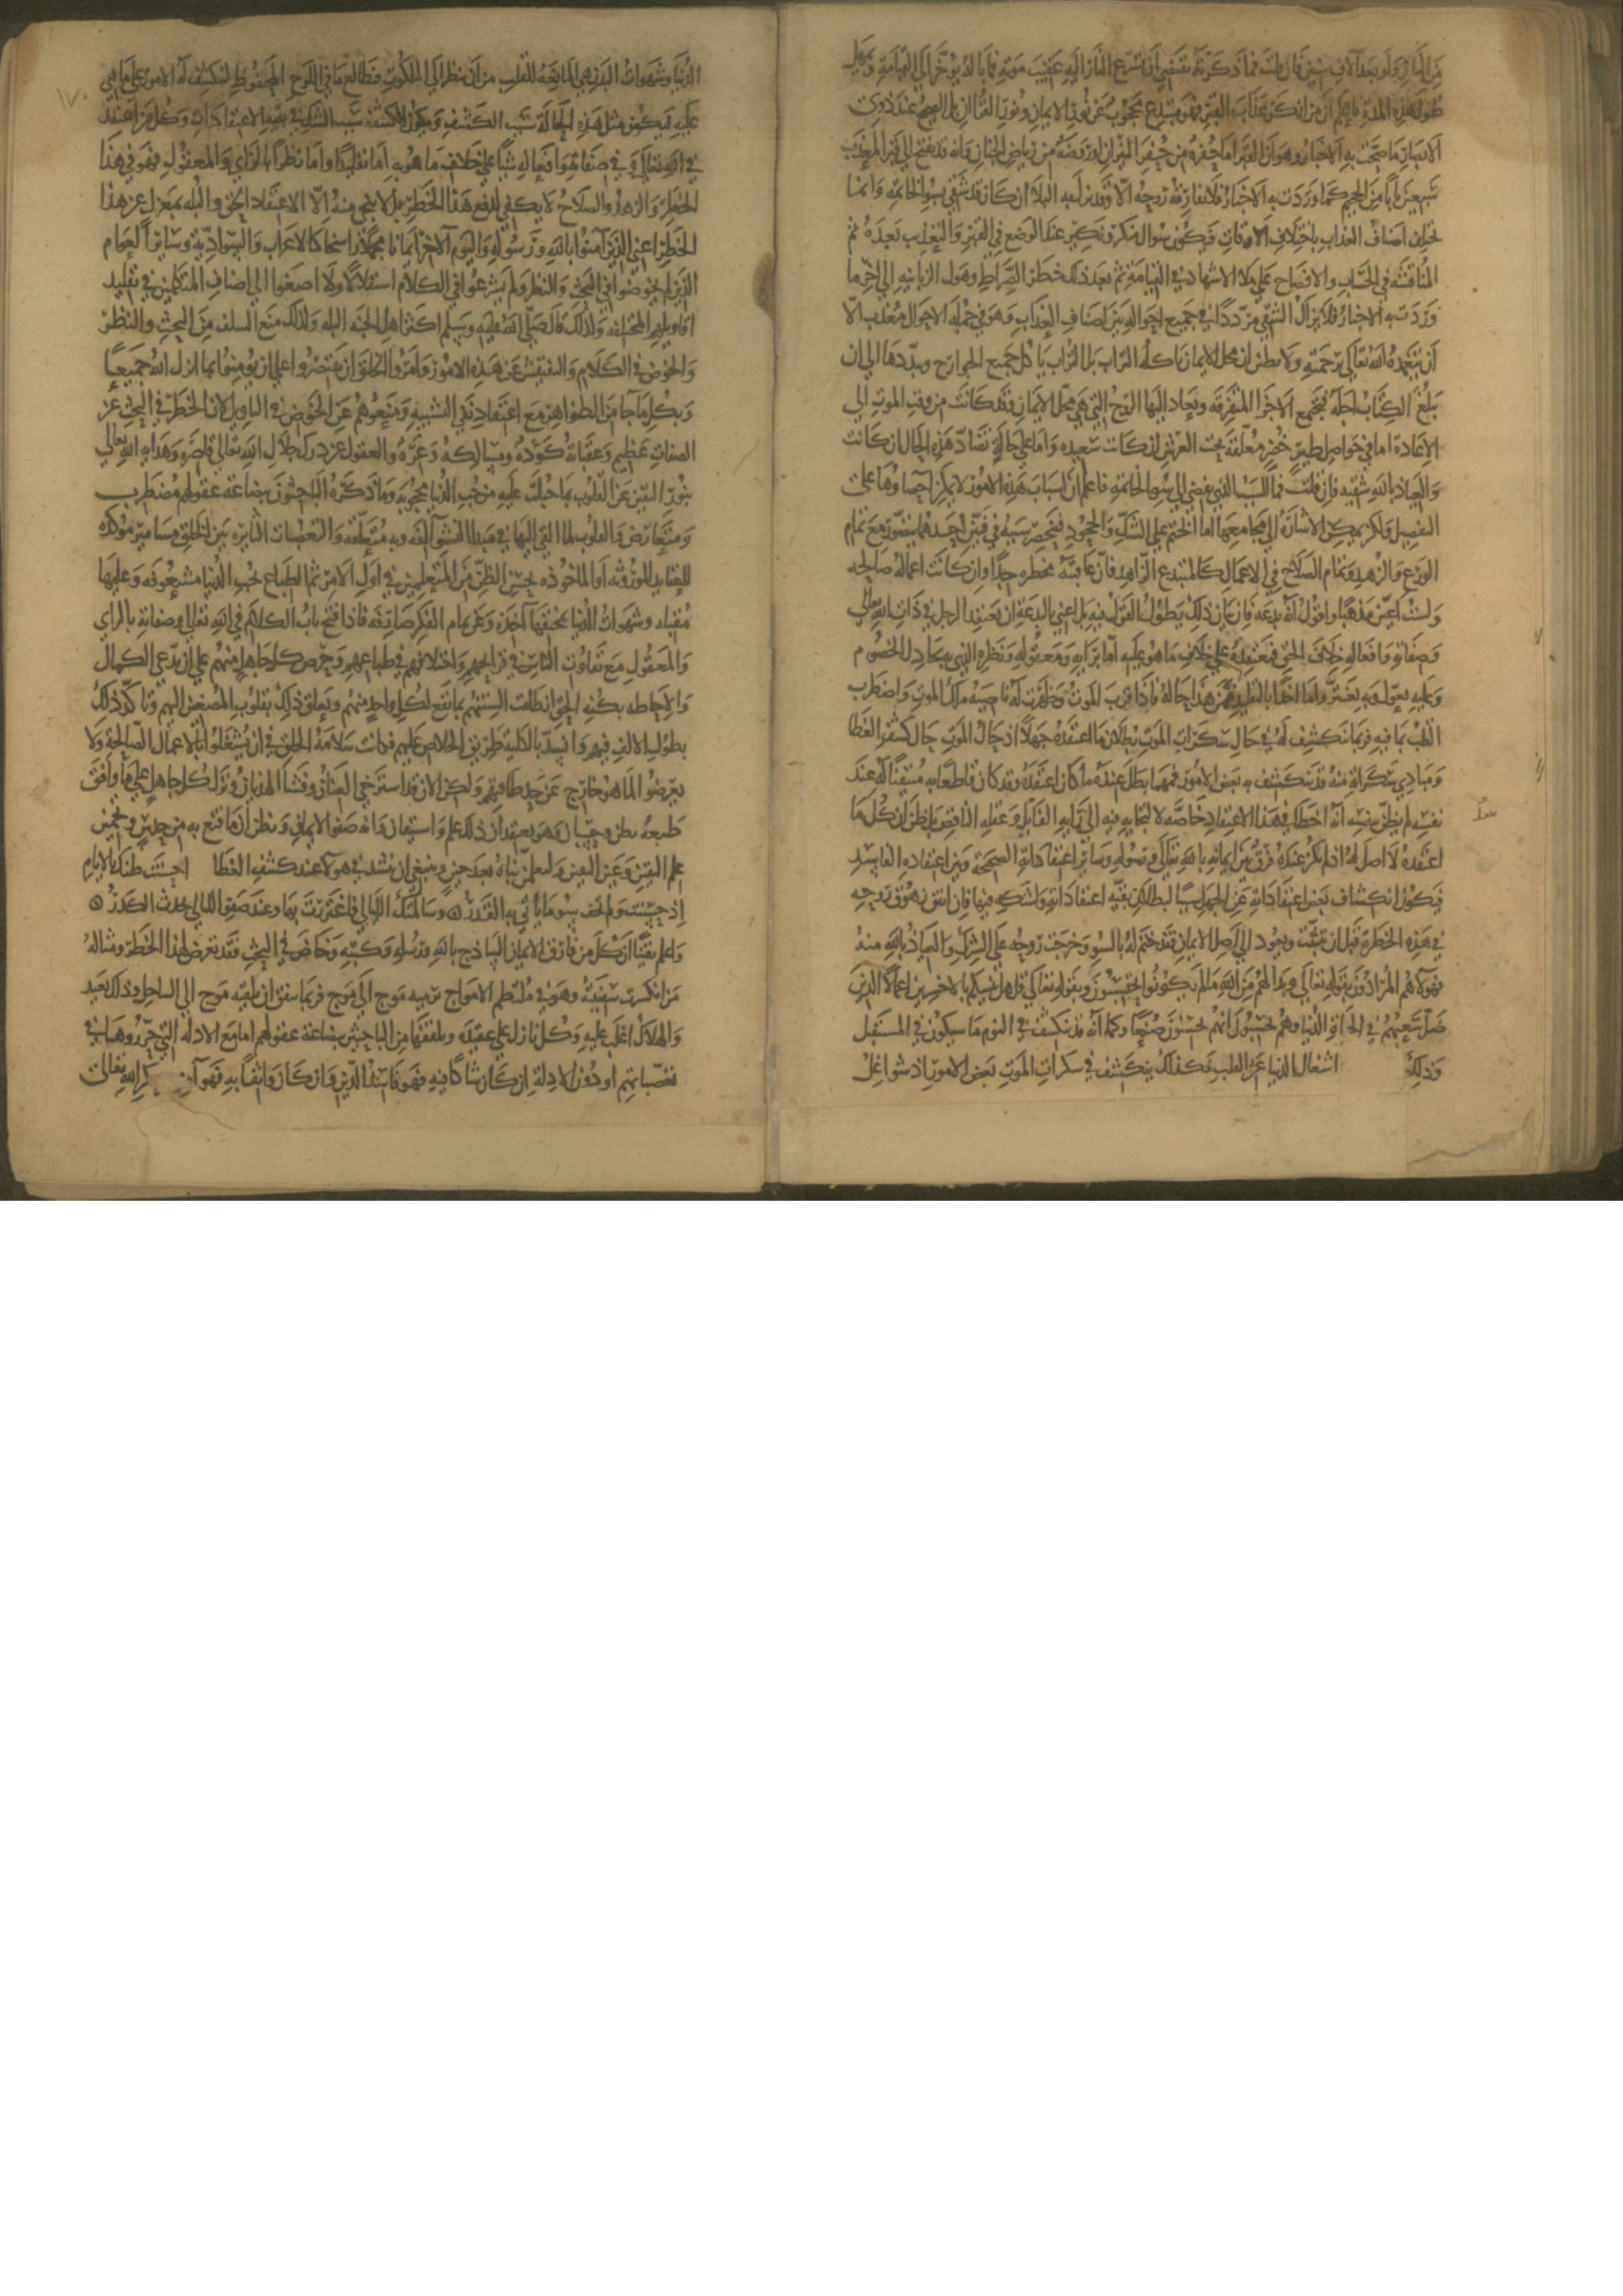 من النار ولو بعد آلاف سنين فان قلت فما ذكرته يقتضي ان تسرع النار اليه عقيب موته فما باله يوخر الى القيامة ويمهل
طول هذه المدة فاعلم ان من انكر عذاب القبر فهو مبتدع محجوب عن نور الايمان ونور القران بل الصحيح عند ذوي
الابصار ما صحت به الاخبار وهو ان القبر اما حفرة من حفر النيران او روضة من رياض الجنان وانه قد يفتح الى قبر المعذب
سبعين بابا من الجحيم كما وردت به الاخبار فلا تفارقه روحه الا وقد نزل به البلا ان كان قد شقي بسو الخاتمه وانما
تختلف اصناف العذاب باختلاف الاوقات فيكون سوال منكر ونكير عند الوضع في القبر والتعذيب بعده ثم
المناقشه في الحساب والافتضاح على ملا الاشهاد في القيامة ثم بعد ذلك خطر الصراط وهول الزبانيه الى اخر ما
وردت به الاخبار فلا يزال الشقي مرددا في جميع احواله بين اصناف العذاب وهو في جملة الاحوال معذب الا
ان يتغمده الله تعالى برحمته ولا تظن ان محل الايمان ياكله التراب بل التراب ياكل جميع الجوارح ويبددها الى ان
يبلغ الكتاب اجله فتجتمع الاجزا المتفرقه وتعاد اليها الروح التي هي محل الايمان وقد كانت من وقت الموت الى
الاعادة اما في حواصل طير خضر معلقة تحت العرش ان كانت سعيده واما على حالة تضاد هذه الحال ان كانت
والعياذ بالله شقيه فان قلت فما السبب الذي يفضي الى سو الخاتمه فاعلم ان اسباب هذه الامور لا يمكن احصاوها على
التفصيل ولكن يمكن الاشارة الى مجامعها اما الختم على الشك والجحود فينحصر سببه في شيئين احدهما يتصور مع تمام
الورع والزهد وتمام الصلاح في الاعمال كالمبتدع الزاهد فان عاقبته مخطره جدا وان كانت اعماله صالحه
ولست اعين مذهبا واقول انه بدعة فان بيان ذلك يطول القول فيه بل اعني بالبدعة ان يعتقد الرجل في ذات الله تعالى
وصفاته وافعاله خلاف الحق فيعتقده على خلاف ما هو عليه اما برايه ومعقوله ونظره الذي به يجادل الخصوم
وعليه يعول وبه يغتر واما اخذا بالتقليد فمن هذا حاله فاذا قرب الموت وظهرت له ناصية ملك الموت واضطرب
القلب بما فيه فربما ينكشف له في حال سكرات الموت بطلان ما اعتقده جهلا اذ حال الموت حال كشف الغطا
ومبادي سكراته منه فقد ينكشف به بعض الامور فمهما بطل عنده ما كان اعتقده وقد كان قاطعا به متيقنا له عند
نفسه لم يظن بنفسه انه اخطا في هذا الاعتقاد خاصة لالتجايه فيه الى رايه الفايل وعقله الناقص بل ظن ان كل ما
اعتقده لا اصل له اذ لم يكن عنده فرق بين ايمانه بالله تعالى ورسوله وساير اعتقاداته الصحيحة وبين اعتقاده الفاسد
فيكون انكشاف بعض اعتقاداته عن الجهل سببا لبطلان بقية اعتقاداته ولشكه فيها فان اتفق زهوق روحه
في هذه الخطرة قبل ان يثبت ويعود الى اصل الايمان فقد ختم له بالسو وخرجت روحه على الشرك والعياذ بالله منه
فهولا هم المرادون بقوله تعالى وبدا لهم من الله ما لم يكونوا يحتسبون وبقوله تعالى قل هل ننبيكم بالاخسرين اعمالا الذين
ضل سعيهم في الحياة الدنيا وهم يحسبون انهم يحسنون صنعا وكما انه قد ينكشف في النوم ما سيكون في المستقبل
وذلك اشغال الدنيا عن القلب فكذلك ينكشف في سكرات الموت بعض الامور اذ شواغل
١٧٠
الدنيا وشهوات البدن هي المانعة للقلب من ان ينظر الى الملكوت فيطالع ما في اللوح المحفوظ لتنكشف له الامور على ما هي
عليه فيكون مثل هذه الحالة سبب الكشف ويكون الكشف سبب الشك في بقية الاعتقادات وكل من اعتقد
في الله تعالى وفي صفاته وافعاله شيا على خلاف ما هو به اما تقليدا واما نظرا بالراي والمعقول فهو في هذا
الخطر والزهد والصلاح لا يكفي لدفع هذا الخطر بل لا ينجي منه الا الاعتقاد الحق والبله بمعزل عن هذا
الخطر اعني الذين آمنوا بالله ورسوله واليوم الآخر ايمانا مجملا راسخا كالاعراب والسوادية وساير العوام
الذين لم يخوضوا في البحث والنظر ولم يشرعوا في الكلام استقلالا ولا اصغوا الى اصناف المتكلمين في تقليد
اقاويلهم المختلفه ولذلك قال صلى الله عليه وسلم اكثر اهل الجنه البله ولذلك منع السلف من البحث والنظر
والخوض في الكلام والتفتيش عن هذه الامور وامروا الخلق ان يقتصروا على ان يومنوا بما انزل الله جميعا
وبكل ما جا من الظواهر مع اعتقاد نفي التشبيه ومنعوهم عن الخوض في التاويل لان الخطر في البحث عن
الصفات عظيم وعقباته كؤده ومسالكه وعره والعقول عن درك جلال الله تعالى قاصره وهداية الله تعالى
بنور اليقين عن القلوب بما جبلت عليه من حب الدنيا محجوبه وما ذكره الباحثون ببضاعة عقولهم مضطرب
ومتعارض والقلوب لما القي اليها في مبدا النشو آلفه وبه متعلقه والتعصبات الثايره بين الخلق مسامير موكده
للعقايد الموروثه او الماخوذه بحسن الظن من المعلمين في اول الامر ثم الطباع بحب الدنيا مشغوفه وعليها
مقبله وشهوات الدنيا بمخنقها آخذه وعن تمام الفكر صارفه فاذا فتح باب الكلام في الله تعالى وصفاته بالراي
والمعقول مع تفاوت الناس في قرايحهم واختلافهم في طباعهم وحرص كل جاهل منهم على ان يدعي الكمال
والاحاطه بكنه الحق انطلقت السنتهم بما يقع لكل واحد منهم وتعلق ذلك بقلوب المصغين اليهم وتاكد ذلك
بطول الالف فيهم وانسد بالكلية طريق الخلاص عليهم فكانت سلامة الخلق في ان يشتغلوا بالاعمال الصالحة ولا
يتعرضوا لما هو خارج عن حد طاقتهم ولكن الان قد استرخى العنان وفشا الهذيان ونزل كل جاهل على ما وافق
طبعه بظن وحسبان وهو يعتقد ان ذلك علم واستيقان وانه صفو الايمان ويظن ان ما وقع به من حدس وتخمين
علم اليقين وعين اليقين ولتعلمن نباه بعد حين وينبغي ان ينشد في هولا عند كشف الغطا احسنت ظنك بالايام
اذ حسنت ولم تخف سو ما ياتي به القدر وسالمتك الليالي فاغتررت بها وعند صفو الليالي يحدث الكدر
واعلم يقينا ان كل من فارق الايمان الساذج بالله ورسله وكتبه وخاض في البحث فقد تعرض لهذا الخطر ومثاله
من انكسرت سفينته وهو في ملتطم الامواج يرميه موج الى موج فربما يتفق ان يلقيه موج الى الساحل وذلك بعيد
والهلاك اغلب عليه وكل نازل على عقيده وتلقفها من الباحثين ببضاعة عقولهم اما مع الادله التي حرروها في
تعصباتهم او دون الادلة ان كان شاكا فيه فهو فاسد الدين وان كان واثقا به فهو آمن مكر الله تعالى